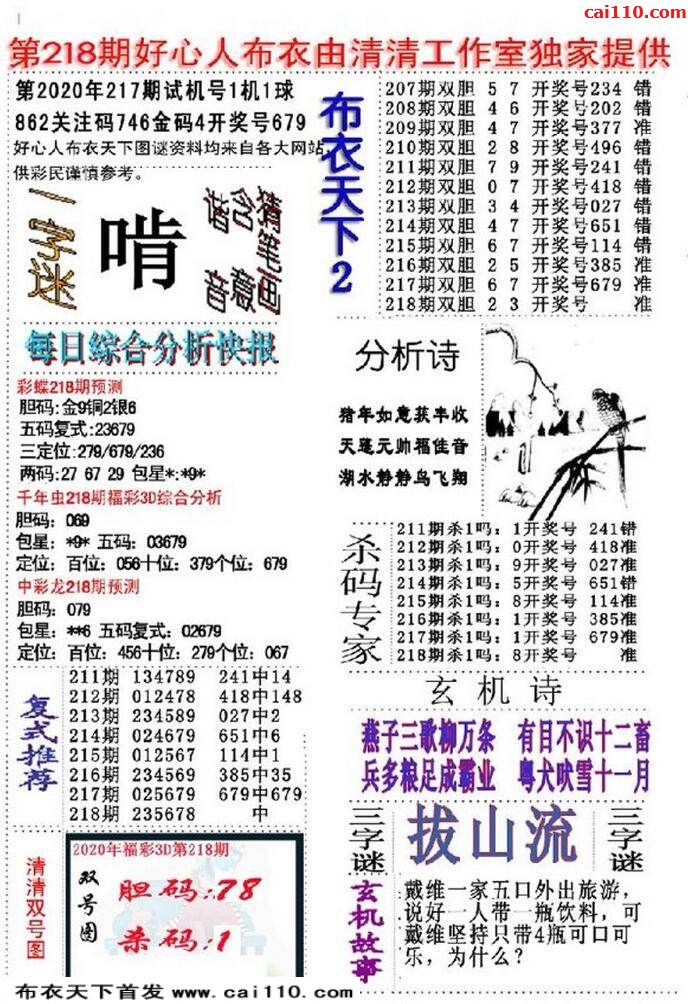 cai110.com
第218期好心人布衣由清清工作室独家提供
第2020年217期试机号1机1球
862关注码746金码4开奖号679
好心人布衣天下图谜资料均来自各大网站,
供彩民谨慎参考。
一字迷
啃
猪笔画
含意
谐音
布衣天下2
207期双胆 5 7 开奖号234 错
208期双胆 4 6 开奖号202 错
209期双胆 4 7 开奖号377 准
210期双胆 2 8 开奖号496 错
211期双胆 7 9 开奖号241 错
212期双胆 0 7 开奖号418 错
213期双胆 3 4 开奖号027 错
214期双胆 4 7 开奖号651 错
215期双胆 6 7 开奖号114 错
216期双胆 2 5 开奖号385 准
217期双胆 6 7 开奖号679 准
218期双胆 2 3 开奖号 错
每日综合分析快报
彩蝶218期预测
胆码:金9铜2银6
五码复式:23679
三定位:279/679/236
两码:27 67 29 包星*:*9*
千年虫218期福彩3D综合分析
胆码：069
包星：*9* 五码：03679
定位：百位：056十位：379个位：679
中彩龙218期预测
胆码：079
包星：**6 五码复式：02679
定位：百位：456十位：279个位：067
分析诗
猪年如意获丰收
天蓬元帅福佳音
湖水静静鸟飞翔
杀码专家
211期杀1吗：1开奖号 241错
212期杀1吗：0开奖号 418准
213期杀1吗：9开奖号 027准
214期杀1吗：5开奖号 651错
215期杀1吗：8开奖号 114准
216期杀1吗：1开奖号 385准
217期杀1吗：1开奖号 679准
218期杀1吗：8开奖号 准
复式推荐
211期 134789 241中14
212期 012478 418中148
213期 234589 027中2
214期 024679 651中6
215期 012567 114中1
216期 234569 385中35
217期 025679 679中679
218期 235678 中
玄机诗
燕子三歌柳万条 有目不识十二畜
兵多粮足成霸业 粤犬吠雪十一月
三字谜
拔山流
三字谜
清清双号图
2020年福彩3D第218期
双号图
胆码:78
杀码:1
玄机故事
戴维一家五口外出旅游，
说好一人带一瓶饮料，可
戴维坚持只带4瓶可口可
乐，为什么？
布衣天下首发 www.cai110.com